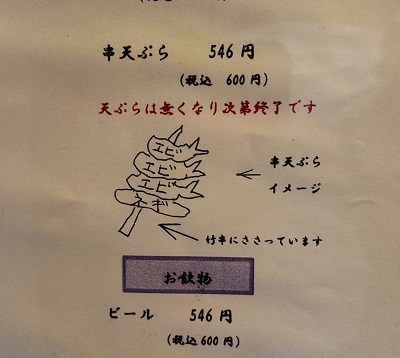 串天ぷら 546円
(税込 600円)
天ぷらは無くなり次第終了です
エビ
エビ
エビ
ネギ
串天ぷら
イメージ
竹串にささっています
お飲物
ビール 546円
(税込600円)